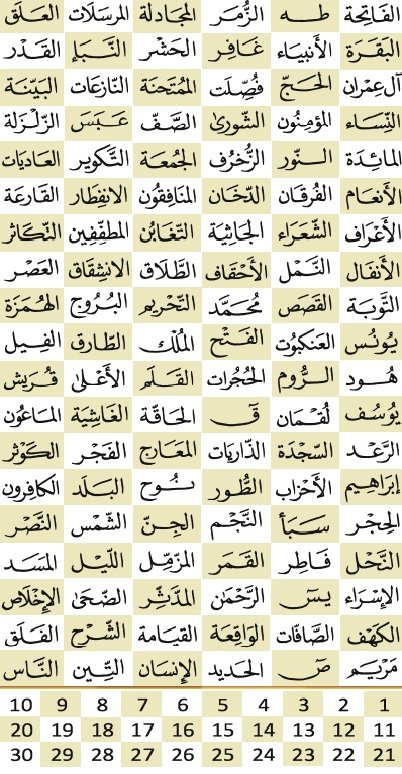 الفَاتِحَة طه الزُّمَر المجَادلة المرسَلَات العَلَق
البَقَرَة الأنبيَاء غَافِر الحَشْر النَّبَإ القَدْر
آل عِمْرَان الحَجّ فُصِّلَت المُمْتَحنَة النّازعَات البَيّنَة
النِّسَاء المؤمِنُون الشّورىٰ الصَّفّ عَبَسَ الزّلْزَلة
المائدَة النّور الزُّخْرُف الجُمعَة التَّكوير العَاديَات
الأنعَام الفُرقَان الدّخَان المنَافِقُون الانفِطَار القَارعَة
الأعْرَاف الشّعَرَاء الجَاثيَة التّغَابُن المطفّفِين التّكَاثر
الأنفَال النَّمْل الأحْقَاف الطَّلَاق الانشِقَاق العَصْر
التَّوبَة القَصَص مُحَمَّد التّحْريم البُرُوج الهُمَزَة
يُونُس العَنكبُوت الفَتْح المُلْك الطّارق الفِيل
هُود الرُّوم الحُجُرَات القَلَم الأعْلىٰ قُرَيش
يُوسُف لُقمَان قٓ الحَاقّة الغَاشيَة الماعُون
الرَّعْد السّجْدَة الذّاريَات المعَارج الفَجْر الكَوْثر
إبرَاهِيم الأحْزاب الطُّور نُوح البَلَد الكافِرون
الحِجْر سَبَأ النَّجْم الجِنّ الشّمْس النَّصْر
النَّحْل فَاطِر القَمَر المزّمِّل اللّيْل المَسَد
الإسْرَاء يسٓ الرَّحْمٰن المدّثِّر الضّحَىٰ الإخْلَاص
الكَهْف الصَّافّات الوَاقِعَة القيَامة الشَّرْح الفَلَق
مَرْيَم صٓ الحَديد الإنسَان التِّين النَّاس
1 2 3 4 5 6 7 8 9 10
11 12 13 14 15 16 17 18 19 20
21 22 23 24 25 26 27 28 29 30